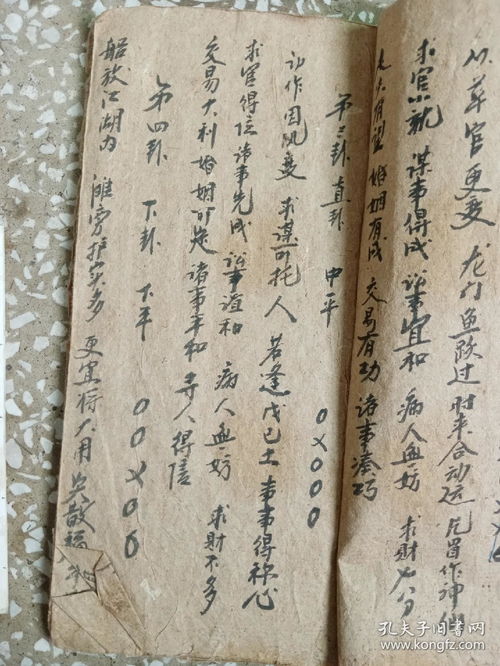 官更变 龙门鱼跃过 时来合动运
求官小就 谋事得成 讼事宜和 病人無妨 求财七八分
走失有望 婚姻有成 交易有功 诸事凑巧
第三卦 直卦 中平 0X000
动作因风变 求谋可托人 若逢戊己土 事事得称心
求官得位 诸事先成 讼事谊和 病人無妨 求财不多
交易大利 婚姻可定 诸事平和 寻人得信
第四卦 下卦 下平 00X00
船放江湖内 滩旁护实多 更宜将大用
孔夫子旧书网
www.kongfz.com